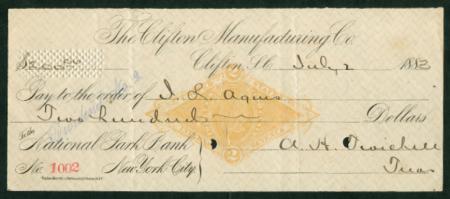 The Clifton Manufacturing Co.
$200.00 Clifton, S.C. July 2 1883
Pay to the order of
Two hundred Dollars
To the
National Park Bank A. H. Twichell
No. 1002 New York City. Treas
2
2